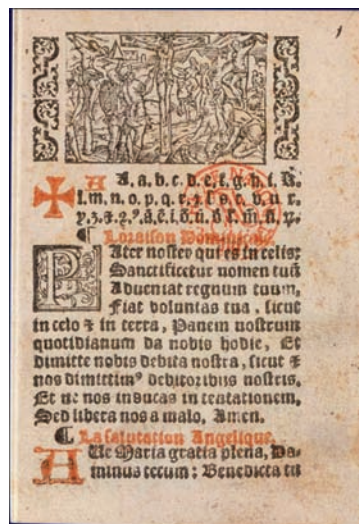 1
A A. a. b. c. d. e. f. g. h. i. k.
l. m. n. o. p. q. r. ſ. s. t. v. u. x.
¶ Loraiſon Dominicale.
PAter noſter qui es in celis:
Sanctificetur nomen tuũ
Adueniat regnum tuum,
Fiat voluntas tua, ſicut
in celo ⁊ in terra, Panem noſtrum
quotidianum da nobis hodie, Et
dimitte nobis debita noſtra, ſicut ⁊
nos dimittimꝰ debitoribus noſtris.
Et ne nos inducas in tentationem,
Sed libera nos a malo, Amen.
¶ La ſalutation Angelique.
AUe Maria gratia plena, Do-
minus tecum: Benedicta tu